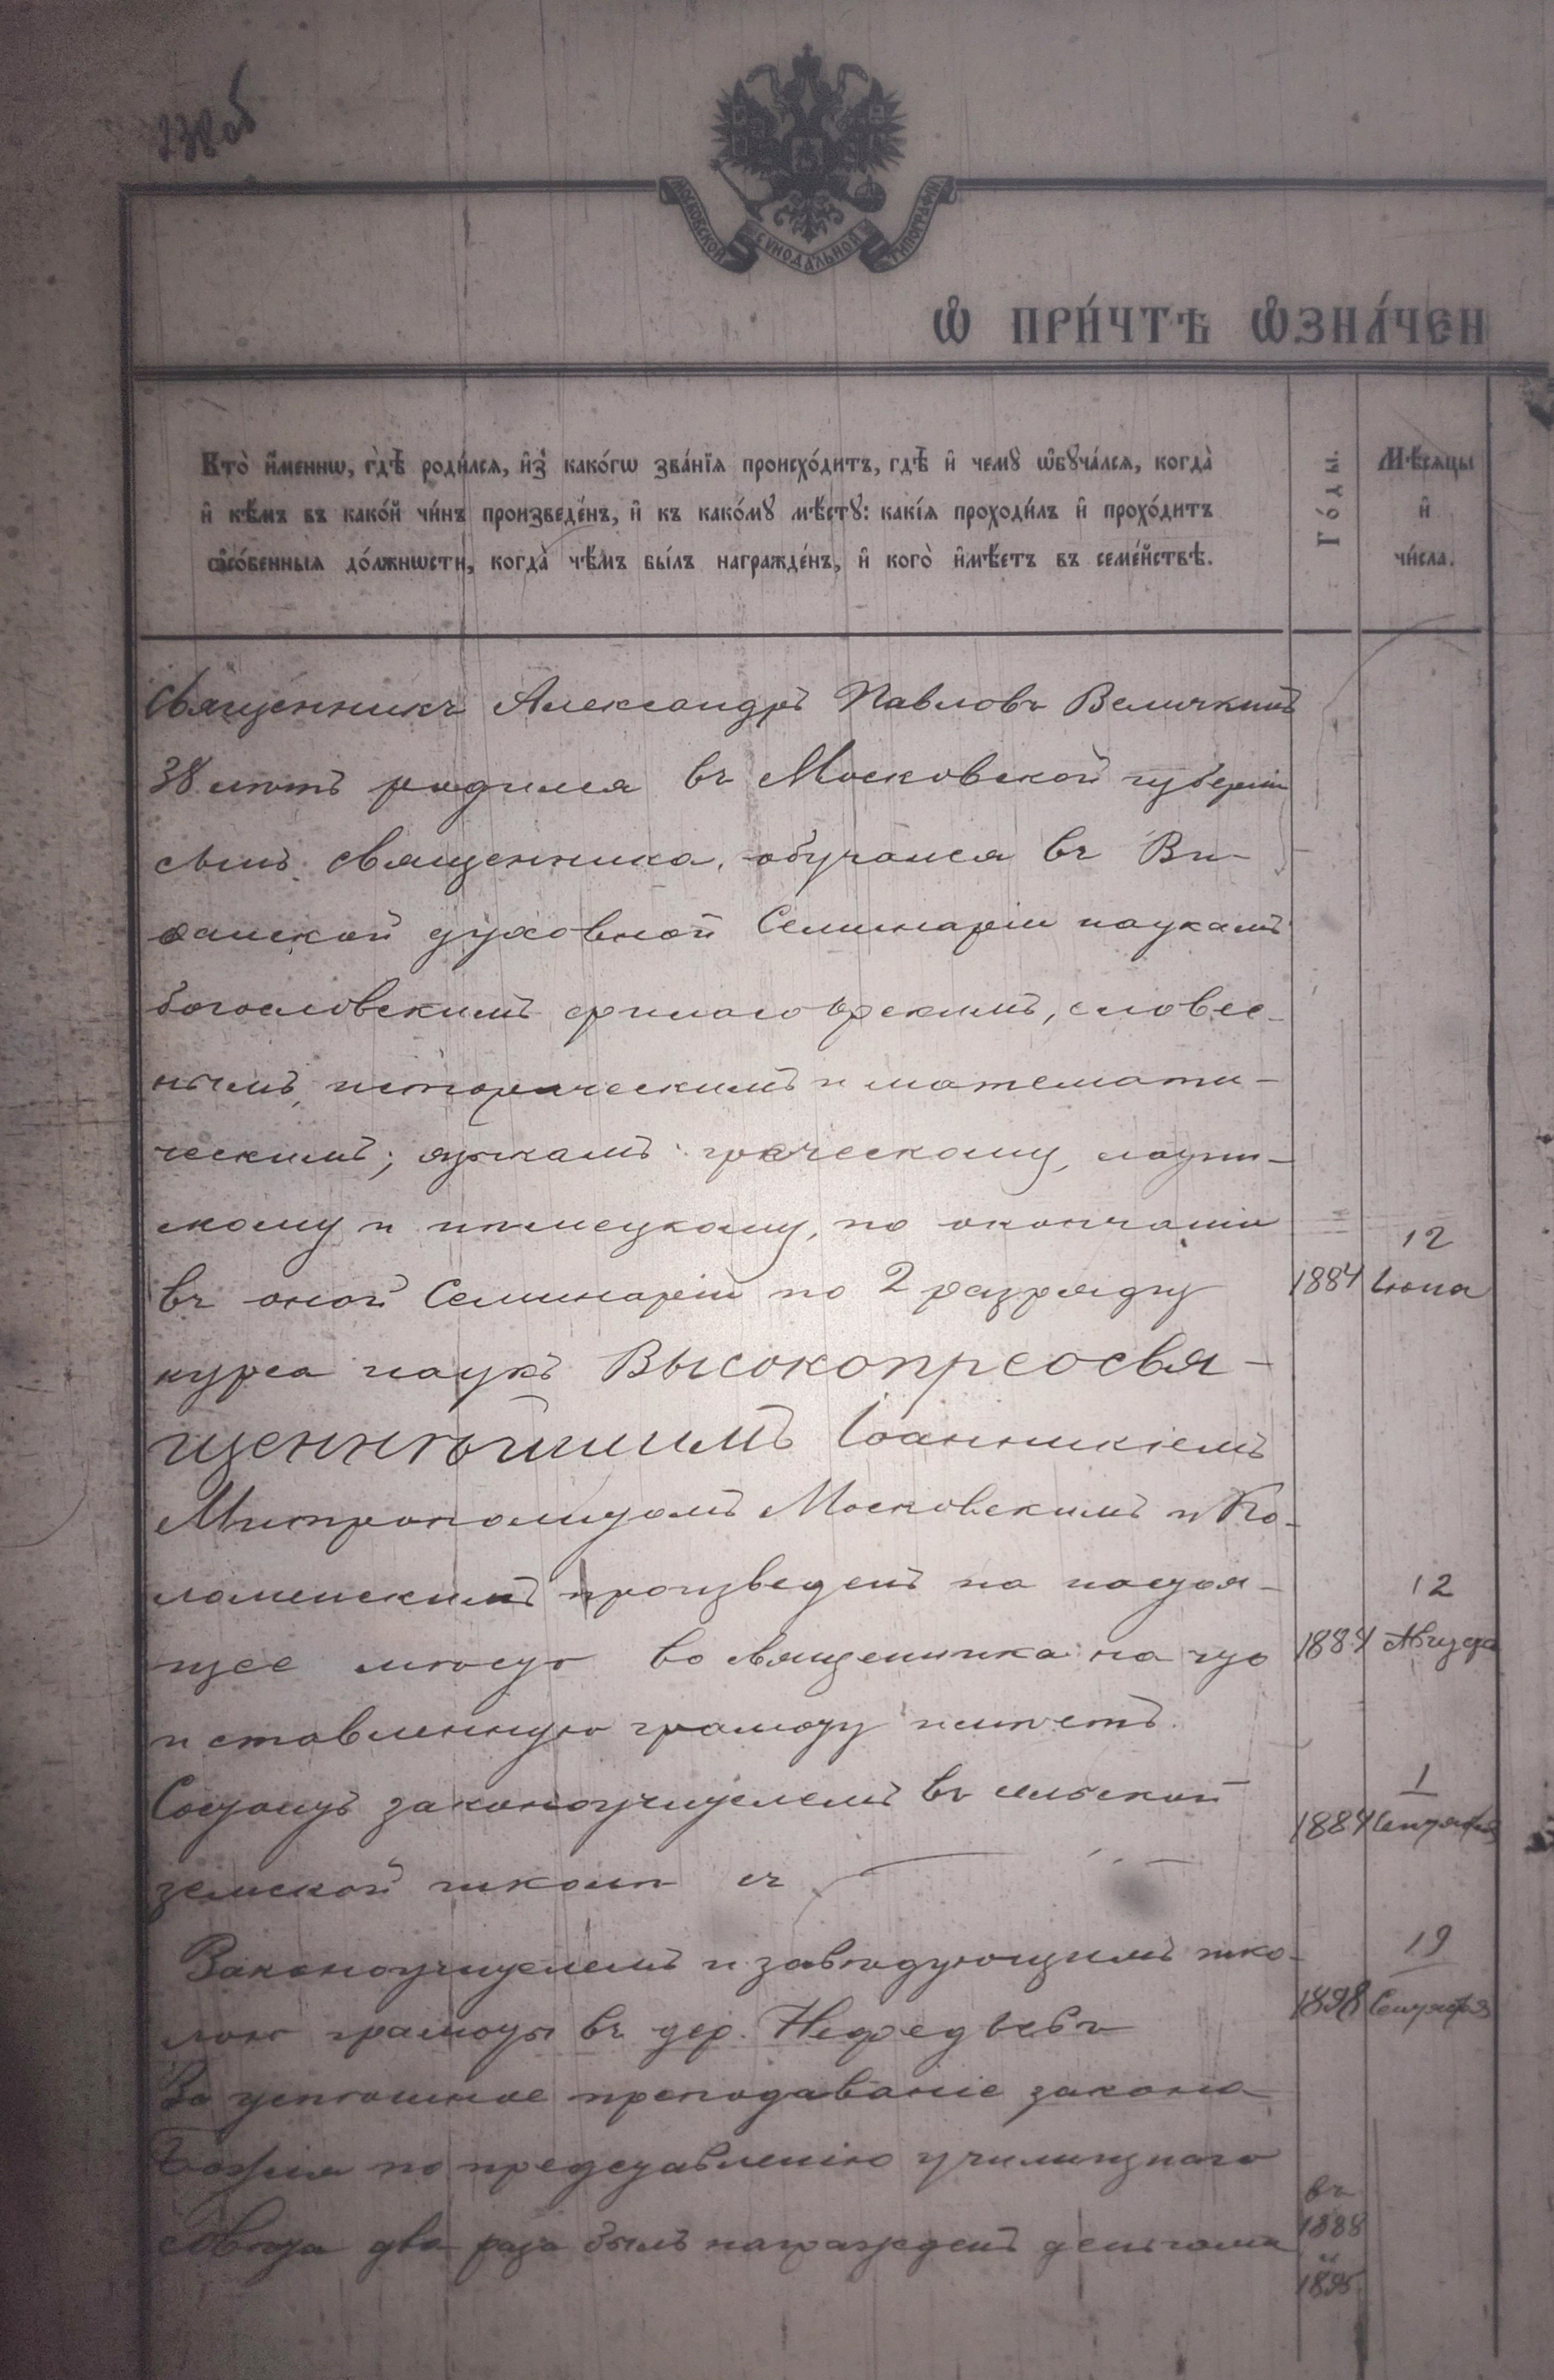 232об
МОСКОВСКОЙ СѴНОДАЛЬНОЙ ТИПОГРАФІИ
Ѽ ПРИ́ЧТѢ Ѽ҆ЗНА́ЧЕН
Кто̀ и҆́меннѡ, гдѣ̀ роди́лсѧ, и҆з̾ како́гѡ зва́нїѧ происхо́дитъ, гдѣ̀ и҆ чемꙋ̀ ѡ҆бꙋча́лсѧ, когда̀
и҆ кѣ́мъ въ како́й чи́нъ произведе́нъ, и҆ къ како́мꙋ мѣ́стꙋ: какі́ѧ проходи́лъ и҆ прохо́дитъ
ѻ҆со́бенныѧ до́лжнѡсти, когда̀ чѣ́мъ бы́лъ награжде́нъ, и҆ кого̀ и҆мѣ́етъ въ семе́йствѣ.
Го́ды.
Мѣ́сѧцы
и҆
чи́сла.
Священникъ Александръ Павловъ Величкинъ
38 лѣтъ родился въ Московской губерніи
сынъ священника, обучался въ Ви-
ѳанской духовной Семинаріи наукамъ
богословскимъ, философскимъ, словес-
нымъ, историческимъ и математи-
ческимъ; языкамъ греческому, латин-
скому и нѣмецкому, по окончаніи
12
въ оной Семинаріи по 2 разряду 1884 Іюня
курса наукъ Высокопреосвя-
щеннѣйшимъ Іоанникіемъ
Митрополитомъ Московскимъ и Ко-
ломенскимъ произведенъ на настоя- 12
щее мѣсто во священника на что 1884 Августа
и ставленную грамоту имѣетъ.
Состоитъ законоучителемъ въ сельской 1
1884 Сентября
земской школѣ съ
Законоучителемъ и завѣдующимъ шко- 19
1898 Сентября
лою грамоты въ дер. Нефедьевѣ
За успѣшное преподаваніе закона
Божія по представленію училищнаго
въ
совѣта два раза былъ награжденъ деньгами 1888
и
1895